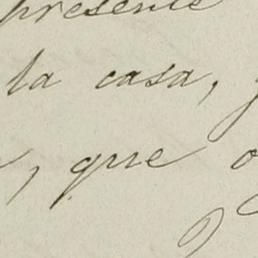 presente
la casa,
, que